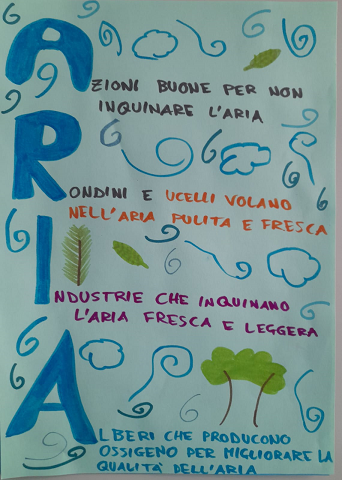 AZIONI BUONE PER NON
INQUINARE L'ARIA
RONDINI E UCELLI VOLANO
NELL'ARIA PULITA E FRESCA
INDUSTRIE CHE INQUINANO
L'ARIA FRESCA E LEGGERA
ALBERI CHE PRODUCONO
OSSIGENO PER MIGLIORARE LA
QUALITÀ DELL'ARIA